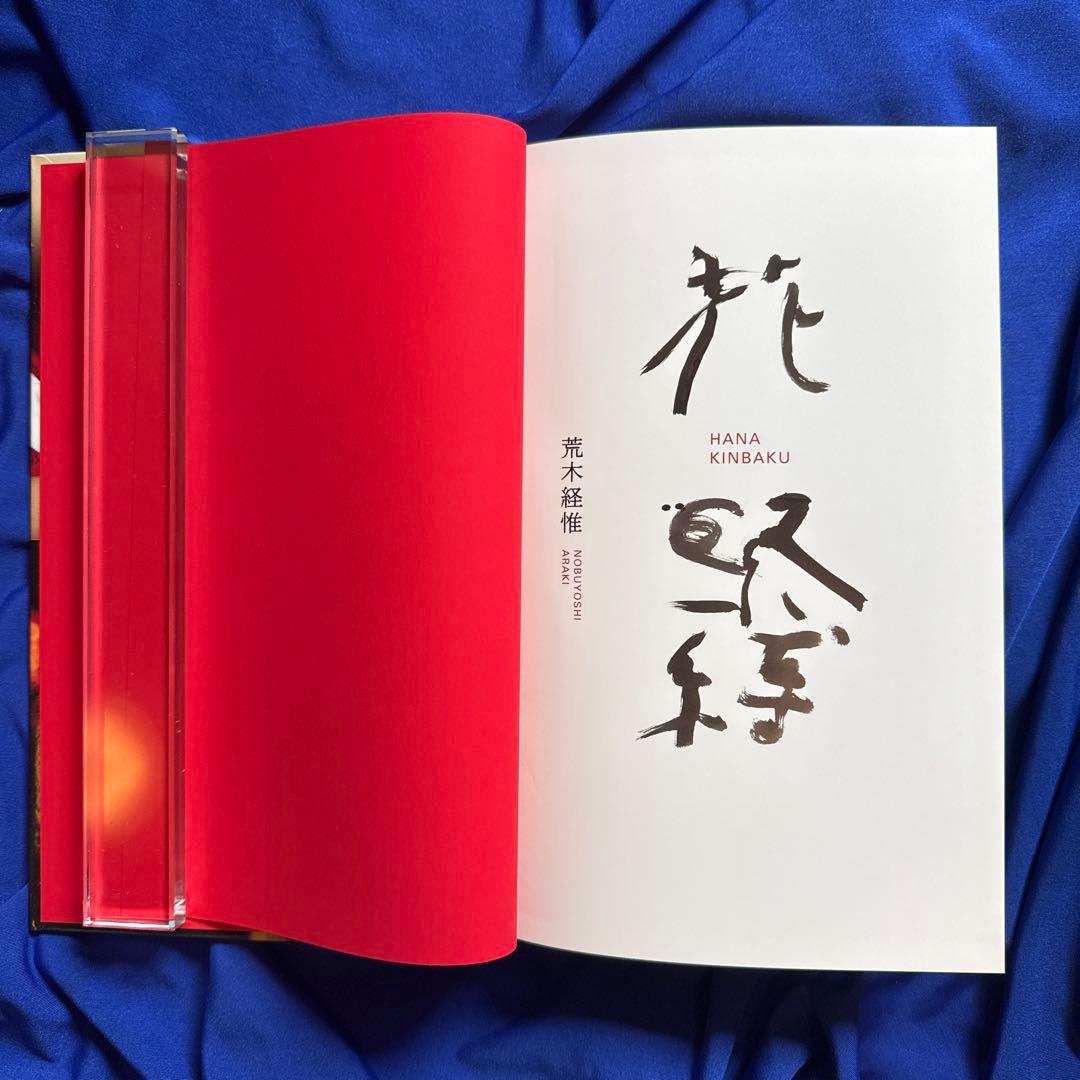 花
HANA
KINBAKU
緊縛
荒木経惟
NOBUYOSHI
ARAKI